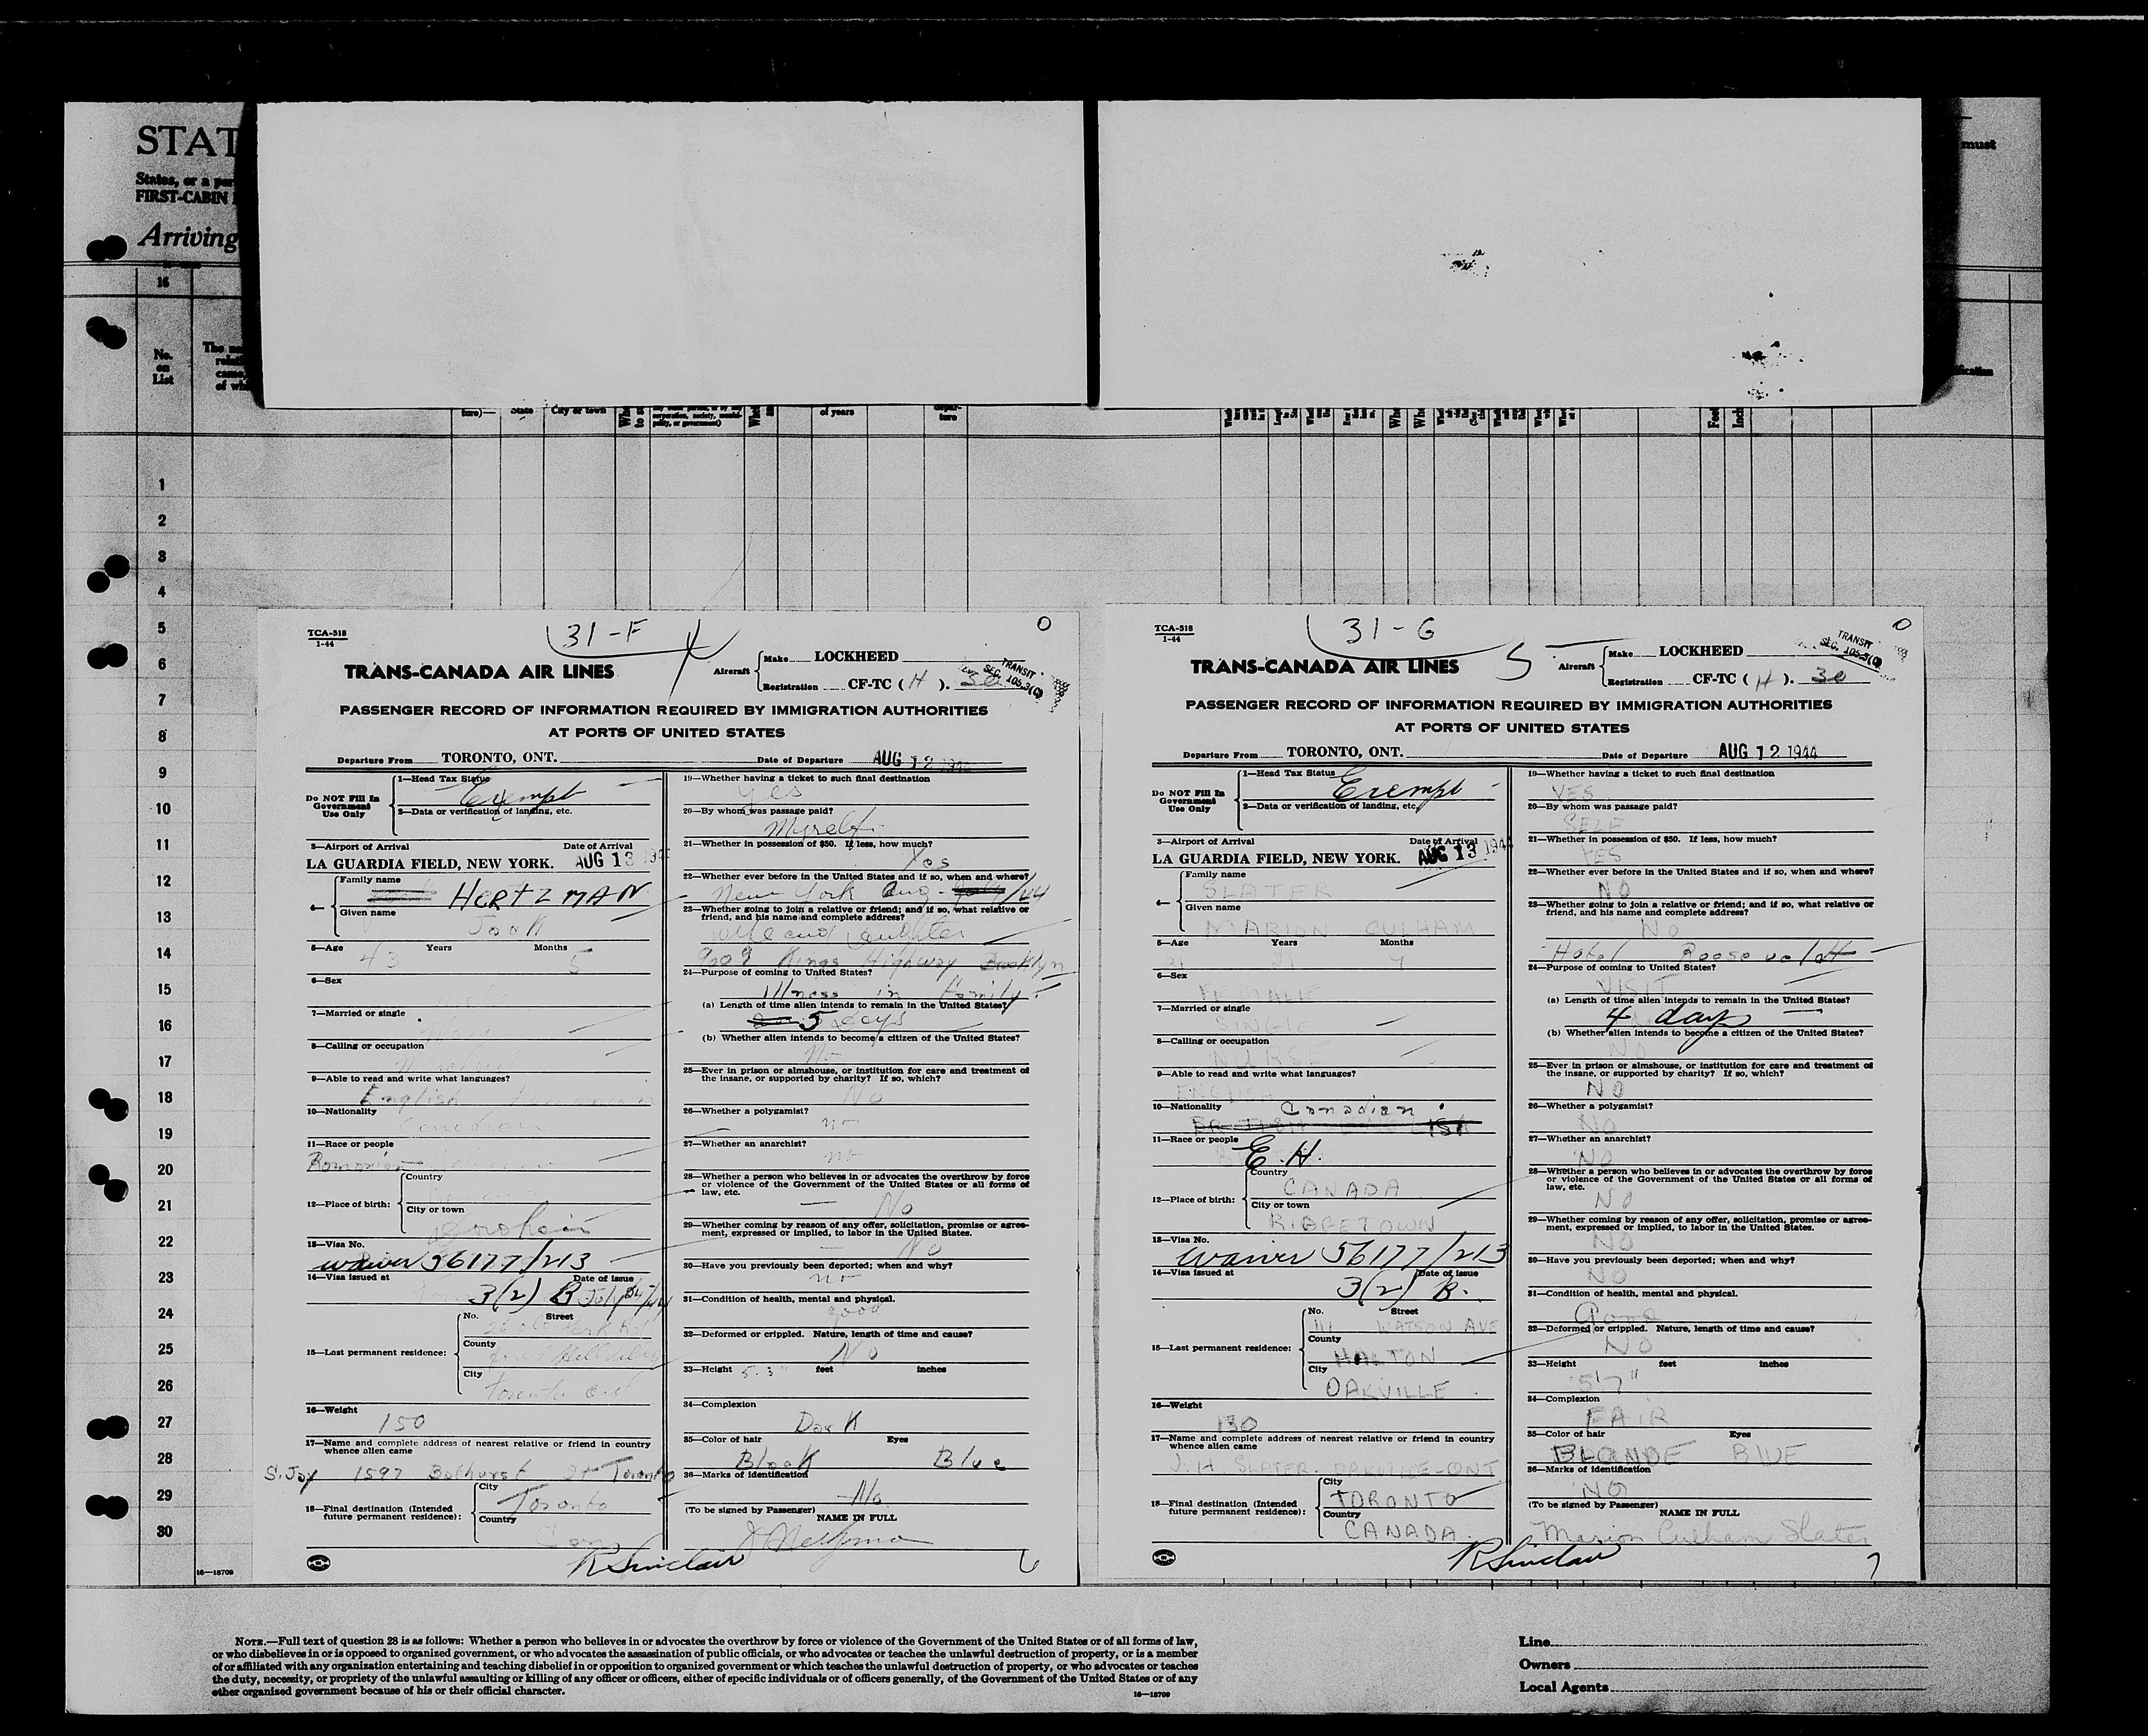 STAT
States, or a
FIRST-CABIN
Arriving
must
16
No.
on
List
ture)—
State
City or town
of years
ture
1
2
3
4
5
6
7
8
9
10
11
12
13
14
15
16
17
18
19
20
21
22
23
24
25
26
27
28
29
30
16—18709
TCA-518
1-44
31-F
0
TRANS-CANADA AIR LINES
Aircraft
Make LOCKHEED
Registration CF-TC ( H ). 30
TRANSIT
SEC. 105.3(C)
PASSENGER RECORD OF INFORMATION REQUIRED BY IMMIGRATION AUTHORITIES
AT PORTS OF UNITED STATES
Departure From TORONTO, ONT. Date of Departure AUG 12
Do NOT Fill In
Government
Use Only
1—Head Tax Status
Exempt
2—Data or verification of landing, etc.
3—Airport of Arrival Date of Arrival
LA GUARDIA FIELD, NEW YORK. AUG 13
4—
Family name
HERTZMAN
Given name
Jack
5—Age Years Months
43 5
6—Sex
7—Married or single
8—Calling or occupation
9—Able to read and write what languages?
English
10—Nationality
Canadian
11—Race or people
Romanian
12—Place of birth:
Country
City or town
Dorohoi
13—Visa No.
waiver 56177/213
14—Visa issued at Date of issue
3(2) B
15—Last permanent residence:
No. Street
County
City
Toronto Ont
16—Weight
150
17—Name and complete address of nearest relative or friend in country
whence alien came
S. Joy 1597 Bathurst St Toronto
18—Final destination (Intended
future permanent residence):
City
Toronto
Country
Can
19—Whether having a ticket to such final destination
yes
20—By whom was passage paid?
Myself
21—Whether in possession of $50. If less, how much?
Yes
22—Whether ever before in the United States and if so, when and where?
New York Aug. /44
23—Whether going to join a relative or friend; and if so, what relative or
friend, and his name and complete address?
wife and daughter
909 Kings Highway Brooklyn
24—Purpose of coming to United States?
Illness in family
(a) Length of time alien intends to remain in the United States?
5 days
(b) Whether alien intends to become a citizen of the United States?
no
25—Ever in prison or almshouse, or institution for care and treatment of
the insane, or supported by charity? If so, which?
No
26—Whether a polygamist?
no
27—Whether an anarchist?
no
28—Whether a person who believes in or advocates the overthrow by force
or violence of the Government of the United States or all forms of
law, etc.
No
29—Whether coming by reason of any offer, solicitation, promise or agree-
ment, expressed or implied, to labor in the United States.
No
30—Have you previously been deported; when and why?
no
31—Condition of health, mental and physical.
good
32—Deformed or crippled. Nature, length of time and cause?
No
33—Height 5.3" feet inches
34—Complexion
Dark
35—Color of hair Eyes
Black Blue
36—Marks of identification
No
(To be signed by Passenger)
NAME IN FULL
R Sinclair
6
TCA-518
1-44
31-G
0
5
TRANS-CANADA AIR LINES
Aircraft
Make LOCKHEED
Registration CF-TC ( H ). 30
TRANSIT
SEC. 105.3(C)
PASSENGER RECORD OF INFORMATION REQUIRED BY IMMIGRATION AUTHORITIES
AT PORTS OF UNITED STATES
Departure From TORONTO, ONT. Date of Departure AUG 12 1944
Do NOT Fill In
Government
Use Only
1—Head Tax Status
Exempt
2—Data or verification of landing, etc.
3—Airport of Arrival Date of Arrival
LA GUARDIA FIELD, NEW YORK. AUG 13 1944
4—
Family name
SLATER
Given name
MARION CULHAM
5—Age Years Months
21 7
6—Sex
FEMALE
7—Married or single
SINGLE
8—Calling or occupation
NURSE
9—Able to read and write what languages?
ENGLISH
10—Nationality
Canadian
11—Race or people
E. H.
12—Place of birth:
Country
CANADA
City or town
RIDGETOWN
13—Visa No.
waiver 56177/213
14—Visa issued at Date of issue
3(2) B.
15—Last permanent residence:
No. Street
111 WATSON AVE
County
HALTON
City
OAKVILLE
16—Weight
130
17—Name and complete address of nearest relative or friend in country
whence alien came
J. H. SLATER. OAKVILLE-ONT
18—Final destination (Intended
future permanent residence):
City
TORONTO
Country
CANADA.
19—Whether having a ticket to such final destination
YES
20—By whom was passage paid?
SELF
21—Whether in possession of $50. If less, how much?
YES
22—Whether ever before in the United States and if so, when and where?
NO
23—Whether going to join a relative or friend; and if so, what relative or
friend, and his name and complete address?
NO
Hotel Roosevelt
24—Purpose of coming to United States?
VISIT
(a) Length of time alien intends to remain in the United States?
4 days
(b) Whether alien intends to become a citizen of the United States?
NO
25—Ever in prison or almshouse, or institution for care and treatment of
the insane, or supported by charity? If so, which?
NO
26—Whether a polygamist?
NO
27—Whether an anarchist?
NO
28—Whether a person who believes in or advocates the overthrow by force
or violence of the Government of the United States or all forms of
law, etc.
NO
29—Whether coming by reason of any offer, solicitation, promise or agree-
ment, expressed or implied, to labor in the United States.
NO
30—Have you previously been deported; when and why?
NO
31—Condition of health, mental and physical.
Good
32—Deformed or crippled. Nature, length of time and cause?
NO
33—Height feet inches
5'7"
34—Complexion
FAIR
35—Color of hair Eyes
BLONDE BLUE
36—Marks of identification
NO
(To be signed by Passenger)
NAME IN FULL
Marion Culham Slater
R Sinclair
7
NOTE.—Full text of question 28 is as follows: Whether a person who believes in or advocates the overthrow by force or violence of the Government of the United States or of all forms of law,
or who disbelieves in or is opposed to organized government, or who advocates the assassination of public officials, or who advocates or teaches the unlawful destruction of property, or is a member
of or affiliated with any organization entertaining and teaching disbelief in or opposition to organized government or which teaches the unlawful destruction of property, or who advocates or teaches
the duty, necessity, or propriety of the unlawful assaulting or killing of any officer or officers, either of specific individuals or of officers generally, of the Government of the United States or of any
other organized government because of his or their official character.
16—18709
Line
Owners
Local Agents